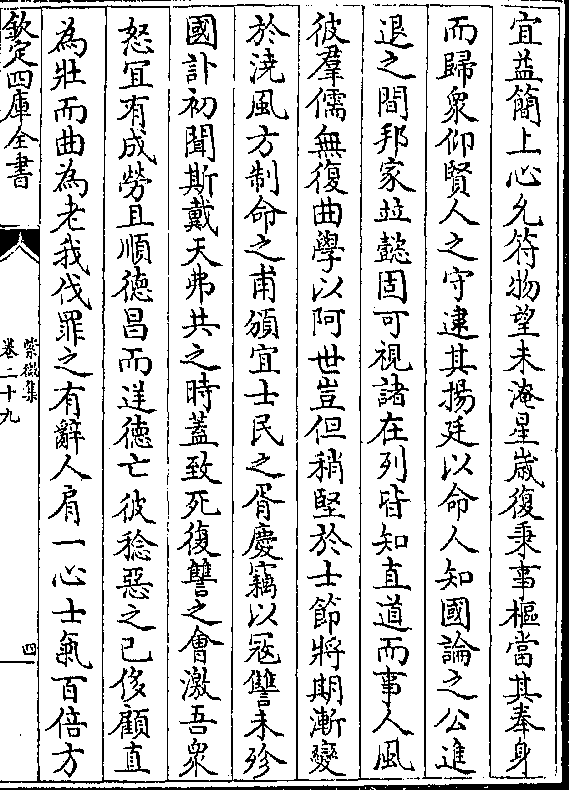 宜益簡上心允符物望未淹星嵗復秉事樞當其奉身
而歸衆仰賢人之守逮其揚廷以命人知國論之公進
退之間邦家並懿固可視諸在列皆知直道而事人風
彼羣儒無復曲學以阿世豈但稍堅於士節將期漸變
於澆風方制命之甫頒宜士民之胥慶竊以冦讐未殄
國訃初聞斯戴天弗共之時蓋致死復讐之會激吾衆
怒宜有成勞且順德昌而逆德亡彼稔惡之已侈顧直
為壯而曲為老我伐罪之有辭人肩一心士氣百倍方
欽定四庫全書
紫微集
卷二十九
四